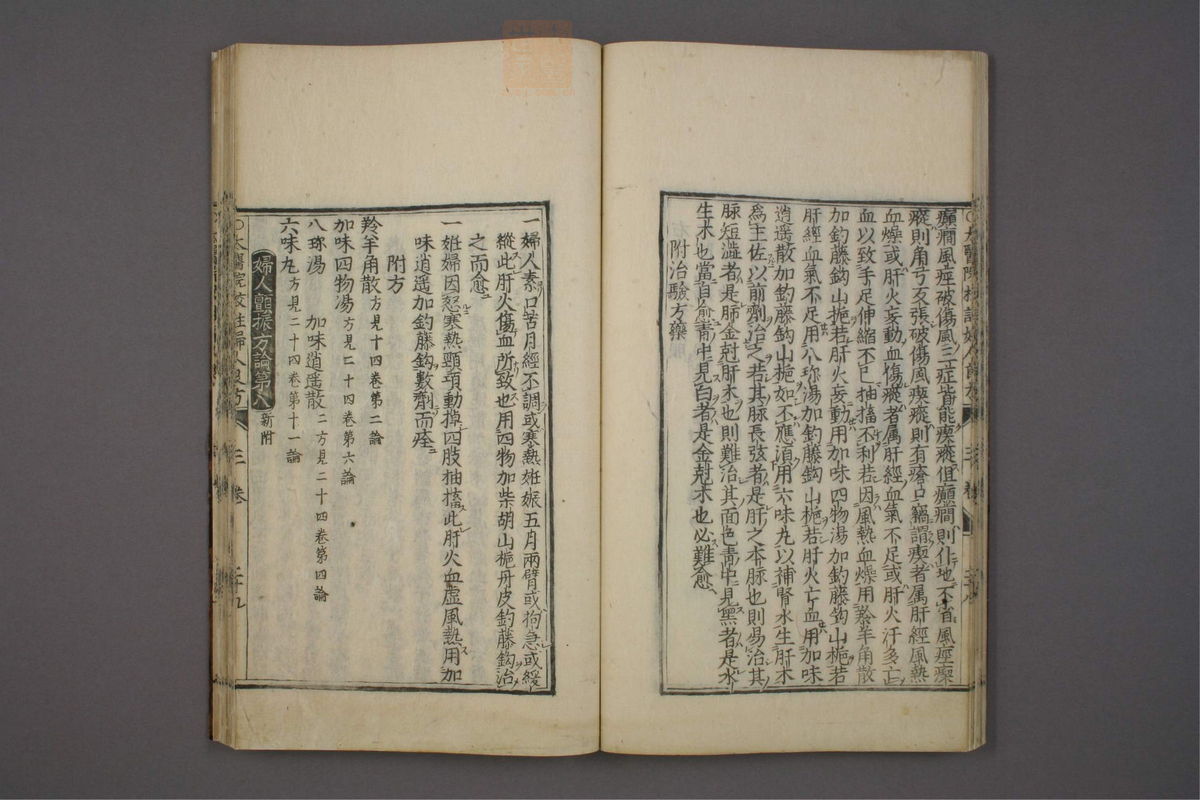 癲癇風痙破傷風三症皆能瘈瘲但癲癇則仆地不省風痙瘈
瘲則角弓反張破傷風瘈瘲則有瘡口竊謂瘈者属肝經風熱
血燥或肝火妄動血傷瘲者属肝經血氣不足或肝火汗多亡
血以致手足伸縮不已抽搐不利若因風熱血燥用羚羊角散
加釣藤鈎山梔若肝火妄動用加味四物湯加釣藤鈎山梔若
肝經血氣不足用八珎湯加釣藤鈎山梔若肝火亡血用加味
逍遥散加釣藤鈎山梔如不應湏用六味丸以補腎水生肝木
爲主佐以前劑治之若其脉長弦者是肝之本脉也則易治其
脉短澁者是肺金尅肝木也則難治其面色青中見黑者是水
生木也當自愈青中見白者是金尅木也必難愈
附治驗方藥
一婦人素口苦月經不調或寒熱姙娠五月兩臂或拘急或緩
縱此肝火傷血所致也用四物加柴胡山梔丹皮釣藤鈎治
之而愈
一姙婦因怒寒熱頸項動掉四肢抽搐此肝火血虚風熱用加
味逍遥加釣藤鈎數劑而痊
附方
羚羊角散方見十四卷第二論
加味四物湯方見二十四卷第六論
八珎湯 加味逍遥散二方見二十四卷第四論
六味丸方見二十四卷第十一論
婦人顫振方論第八新附
○太醫院校註婦人良方 三卷 三十九